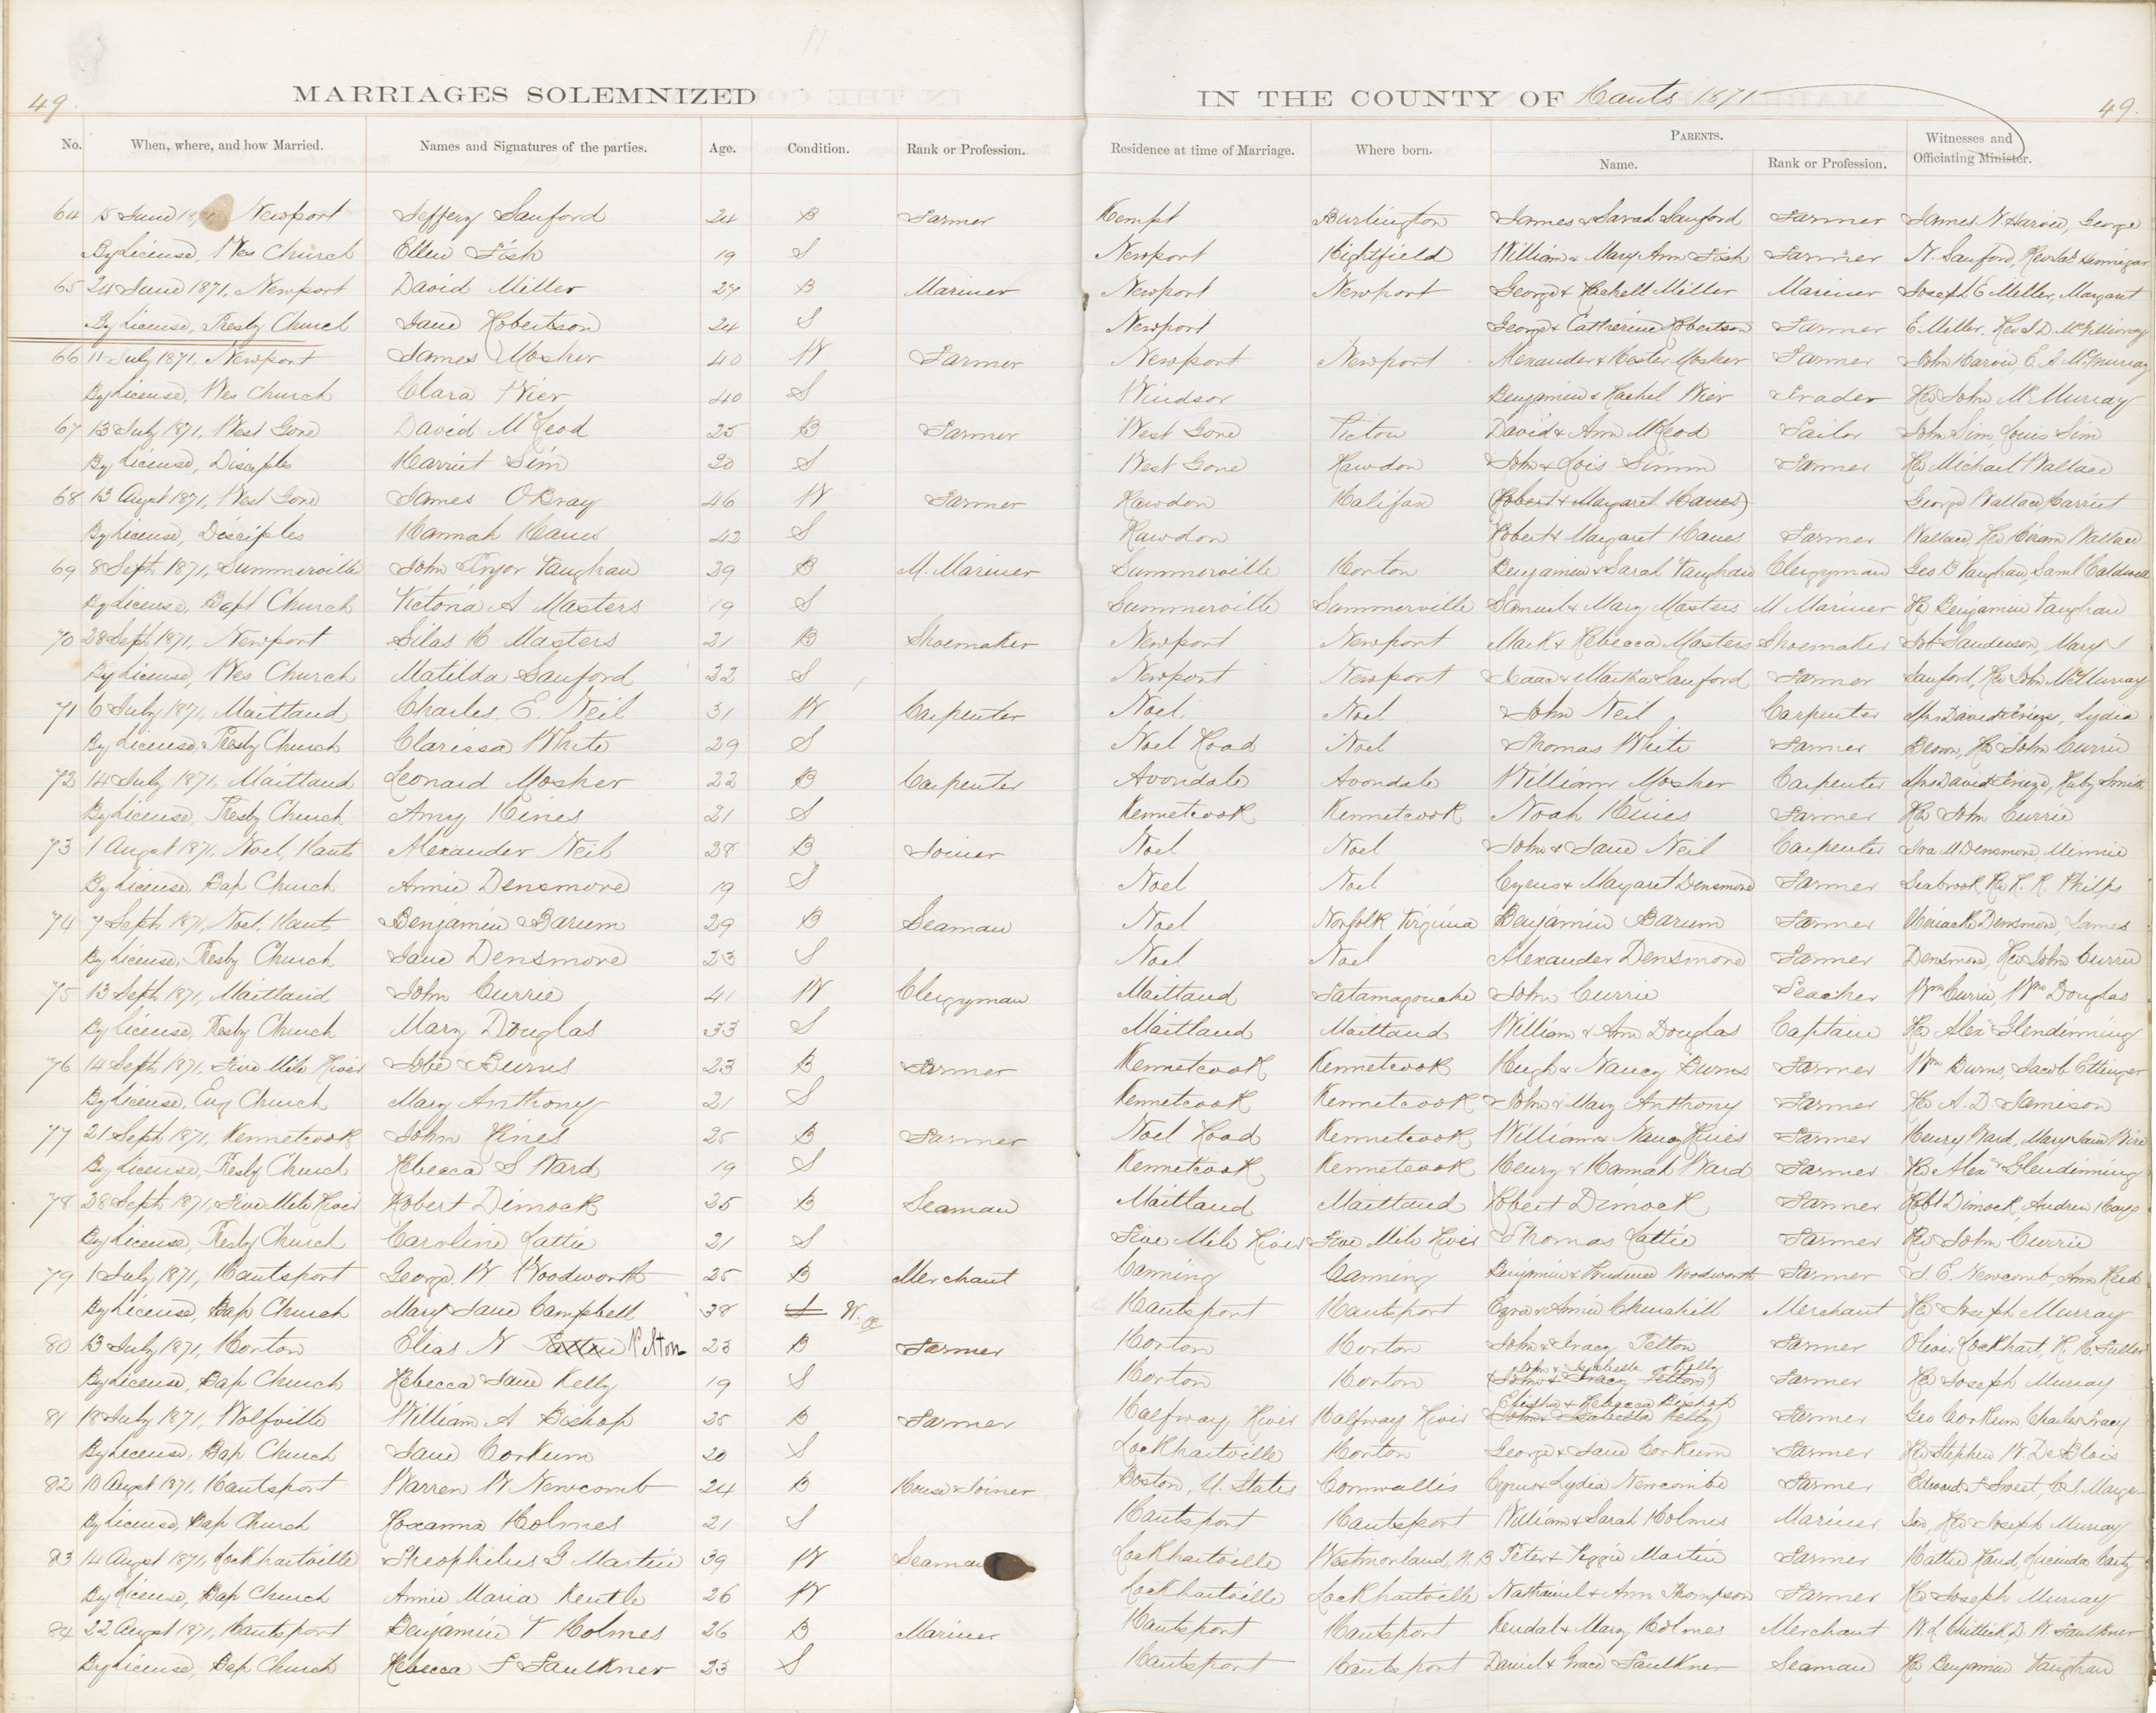 49.
MARRIAGES SOLEMNIZED IN THE COUNTY OF Hants 1871
49.
No. When, where, and how Married. Names and Signatures of the parties. Age. Condition. Rank or Profession. Residence at time of Marriage. Where born. PARENTS. Name. Rank or Profession. Witnesses and Officiating Minister.
64 15 June Newport Jeffery Sanford 24 B Farmer Kempt Burlington James & Sarah Sanford Farmer James N Harvie, George
By License, Wes Church Ellen Fish 19 S Newport Hightfield William & Mary Ann Fish Farmer N. Sanford, Rev
65 24 June 1871, Newport David Miller 27 B Mariner Newport Newport George & Miller Mariner Joseph E Miller, Margaret
By License, Presby Church Jane Robertson 24 S Newport George & Catherine Robertson Farmer E. Miller, Rev J D
66 11 July 1871, Newport James Mosher 40 W Farmer Newport Newport Alexander & Hester Mosher Farmer John Harvie, E. A. McMurray
By License, Wes Church Clara Wier 40 S Windsor Benjamin & Rachel Wier Trader Rev John McMurray
67 13 July 1871, West Gore David McLeod 25 B Farmer West Gore Pictou David & Ann McLeod Tailor John Sim, Louis Sim
By License, Disciples Harriet Sim 20 S West Gore Rawdon John & Lois Simm Farmer Rev Michael Wallace
68 13 Augst 1871, West Gore James O'Bray 46 W Farmer Rawdon Halifax (Robert & Margaret Hanes) George Wallace Harriet
By License, Disciples Hannah Hanes 42 S Rawdon Robert & Margaret Hanes Farmer Wallace, Rev Hiram Wallace
69 8 Sept 1871, Summerville John Pryor Vaughan 29 B M. Mariner Summerville Horton Benjamin & Sarah Vaughan Clergyman Geo B Vaughan, Saml Caldwell
By License, Bapt Church Victoria A Masters 19 S Summerville Summerville Samuel & Mary Masters M Mariner Rev Benjamin Vaughan
70 28 Sept 1871, Newport Silas H Masters 21 B Shoemaker Newport Newport Mark & Rebecca Masters Shoemaker Job Sanderson, Mary J
By License, Wes Church Matilda Sanford 22 S Newport Newport Isaac & Martha Sanford Farmer Sanford, Rev John McMurray
71 6 July 1871, Maitland Charles. E. Neil 31 W Carpenter Noel Noel John Neil Carpenter Mrs David Frieze, Lydia
By License, Presby Church Clarissa White 29 S Noel Road Noel Thomas White Farmer Brown, Rev John Currie
72 14 July 1871, Maitland Leonard Mosher 22 B Carpenter Avondale Avondale William Mosher Carpenter Mrs David Frieze, Ruby Smith
By License, Presby Church Amy Hines 21 S Kennetcook Kennetcook Noah Hines Farmer Rev John Currie
73 1 Augst 1871, Noel, Hants Alexander Neil 28 B Joiner Noel Noel John & Jane Neil Carpenter Ira M Densmore, Minnie
By License, Bap Church Annie Densmore 19 S Noel Noel Cyrus & Margaret Densmore Farmer Seabrook, Rev R. R. Philps
74 7 Sept 1871, Noel, Hants Benjamin Barum 29 B Seaman Noel Norfolk Virginia Benjamin Barum Farmer Densmore, James
By License, Presby Church Jane Densmore 23 S Noel Noel Alexander Densmore Farmer Densmore, Rev John Currie
75 13 Sept 1871, Maitland John Currie 41 W Clergyman Maitland Tatamagouche John Currie Teacher Wm Currie, Wm Douglas
By License, Presby Church Mary Douglas 33 S Maitland Maitland William & Ann Douglas Captain Rev Alex Glendinning
76 14 Sept 1871, Five Mile River Jobe Burns 23 B Farmer Kennetcook Kennetcook Hugh & Nancy Burns Farmer Wm Burns, Jacob Ettinger
By License, Eng Church Mary Anthony 21 S Kennetcook Kennetcook John & Mary Anthony Farmer Rev A. D Jamison
77 21 Sept 1871, Kennetcook John Hines 25 B Farmer Noel Road Kennetcook William & Nancy Hines Farmer Henry Ward, Mary Jane
By License, Presby Church Rebecca S Ward 19 S Kennetcook Kennetcook Henry & Hannah Ward Farmer Rev Alex Glendinning
78 28 Sept 1871, Five Mile River Robert Dimock 25 B Seaman Maitland Maitland Robert Dimock Farmer Robt Dimock, Andrew Hays
By License, Presby Church Caroline Lattie 21 S Five Mile River Five Mile River Thomas Lattie Farmer Rev John Currie
79 1 July 1871, Hantsport George. W Woodworth 25 B Merchant Canning Canning Benjamin & Prudence Woodworth Farmer J. E. Newcomb, Ann Reid
By License, Bap Church Mary Jane Campbell 38 S W. Hantsport Hantsport Ezra & Annie Churchill Merchant Rev Joseph Murray
80 13 July 1871, Horton Elias N Patten Pelton 23 B Farmer Horton Horton John & Tracy Pelton Farmer Oliver Lockhart, R. E. Fuller
By License, Bap Church Rebecca Jane Kelly 19 S Horton Horton John & Isabella Kelly (John & Tracy Pelton) Farmer Rev Joseph Murray
81 18 July 1871, Wolfville William A Bishop 25 B Farmer Halfway River Halfway River Elisha & Rebecca Bishop (John & Isabella Kelly) Farmer Geo Corkum, Charles Tracy
By License, Bap Church Jane Corkum 20 S Lockhartville Horton George & Jane Corkum Farmer Rev Stephen W. DeBlois
82 10 Augst 1871, Hantsport Warren W Newcomb 24 B House Joiner Boston, U. States Cornwallis Cyrus & Lydia Newcombe Farmer Edward Sweet,
By License, Bap Church Roxanna Holmes 21 S Hantsport Hantsport William & Sarah Holmes Mariner son, Rev Joseph Murray
83 14 Augst 1871, Lockhartville Theophilus G Martin 39 W Seaman Lockhartville Westmorland, N. B Peter & Peggie Martin Farmer Hattie Rand, Lucinda
By License, Bap Church Annie Maria 26 W Lockhartville Lockhartville Nathaniel & Ann Thompson Farmer Rev Joseph Murray
84 22 Augst 1871, Hantsport Benjamin T Holmes 26 B Mariner Hantsport Hantsport Kendal & Mary Holmes Merchant W. L Chittick, D. W. Faulkner
By License, Bap Church Rebecca S Faulkner 23 S Hantsport Hantsport Daniel & Grace Faulkner Seaman Rev Benjamin Vaughan